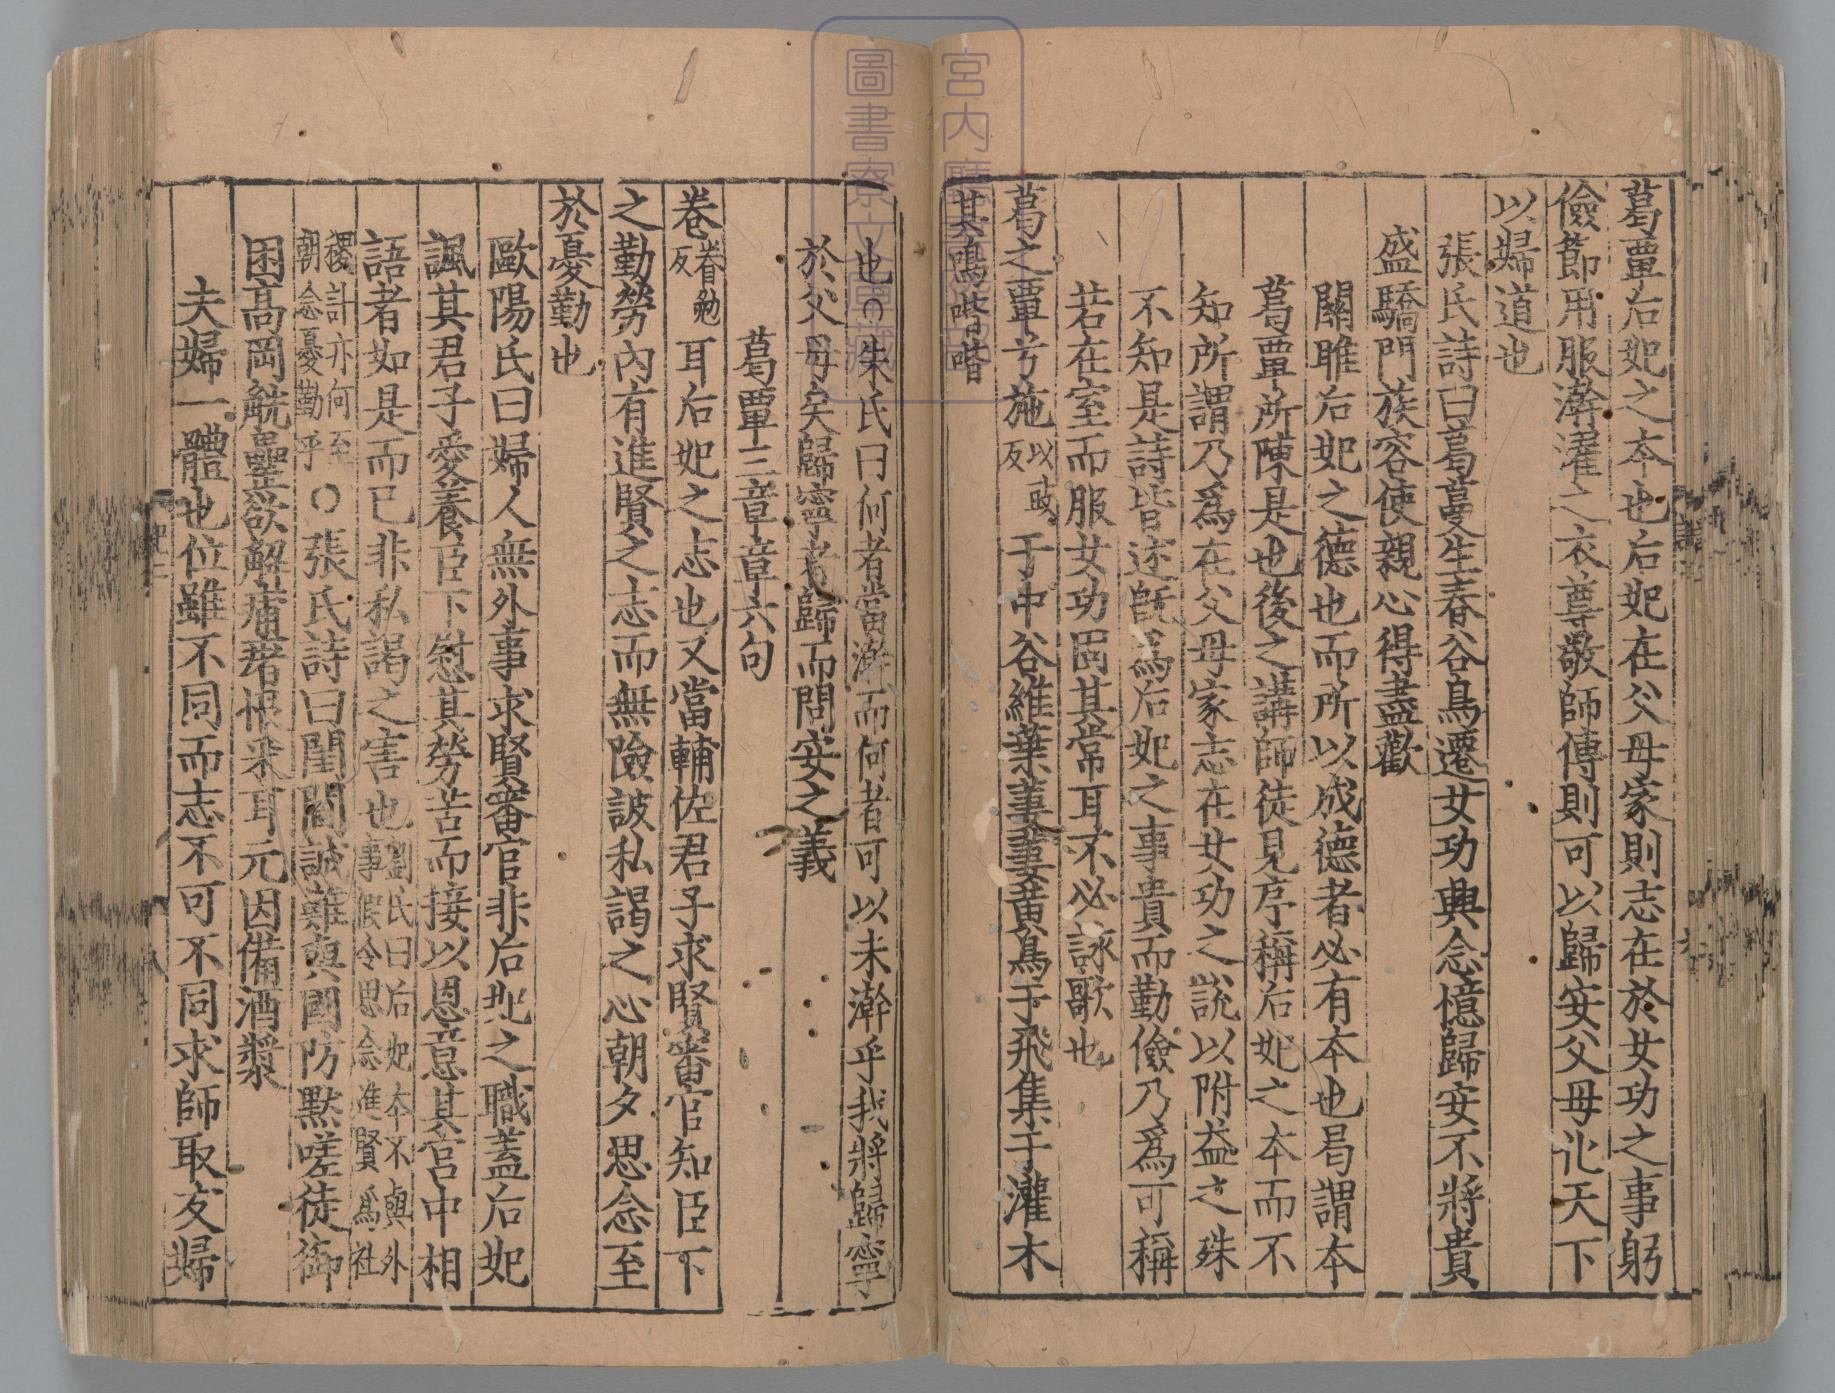 葛覃后妃之本也后妃在父母家則志在於女功之事躬
儉節用服澣濯之衣尊敬師傅則可以歸安父母化天下
以婦道也
張氏詩曰葛蔓生春谷鳥遷女功興念憶歸安不將貴
盛驕門族容使親心得盡歡
關雎后妃之德也而所以成德者必有本也曷謂本
葛覃所陳是也後之講師徒見序稱后妃之本而不
知所謂乃爲在父母家志在女功之說以附益之殊
不知是詩皆述旣爲后妃之事貴而勤儉乃爲可稱
若在室而服女功固其常耳不必詠歌也
葛之覃兮施以豉反于中谷維葉萋萋黃鳥于飛集于灌木
其鳴喈喈
也○朱氏曰何者當澣而何者可以未澣乎我將歸寧
於父母矣歸寧者歸而問安之義
葛覃三章章六句
卷眷勉反耳后妃之志也又當輔佐君子求賢審官知臣下
之勤勞內有進賢之志而無險詖私謁之心朝夕思念至
於憂勤也
歐陽氏曰婦人無外事求賢審官非后妃之職蓋后妃
諷其君子愛養臣下慰其勞苦而接以恩意其宮中相
語者如是而已非私謁之害也劉氏曰后妃本不與外事假令思念進賢爲社
稷計亦何至朝念憂勤乎○張氏詩曰閨閫誠難與國防默嗟徒御
困高岡觥罍欲解痡瘏恨釆耳元因備酒漿
夫婦一體也位雖不同而志不可不同求師取友婦
宮内廳
圖書寮